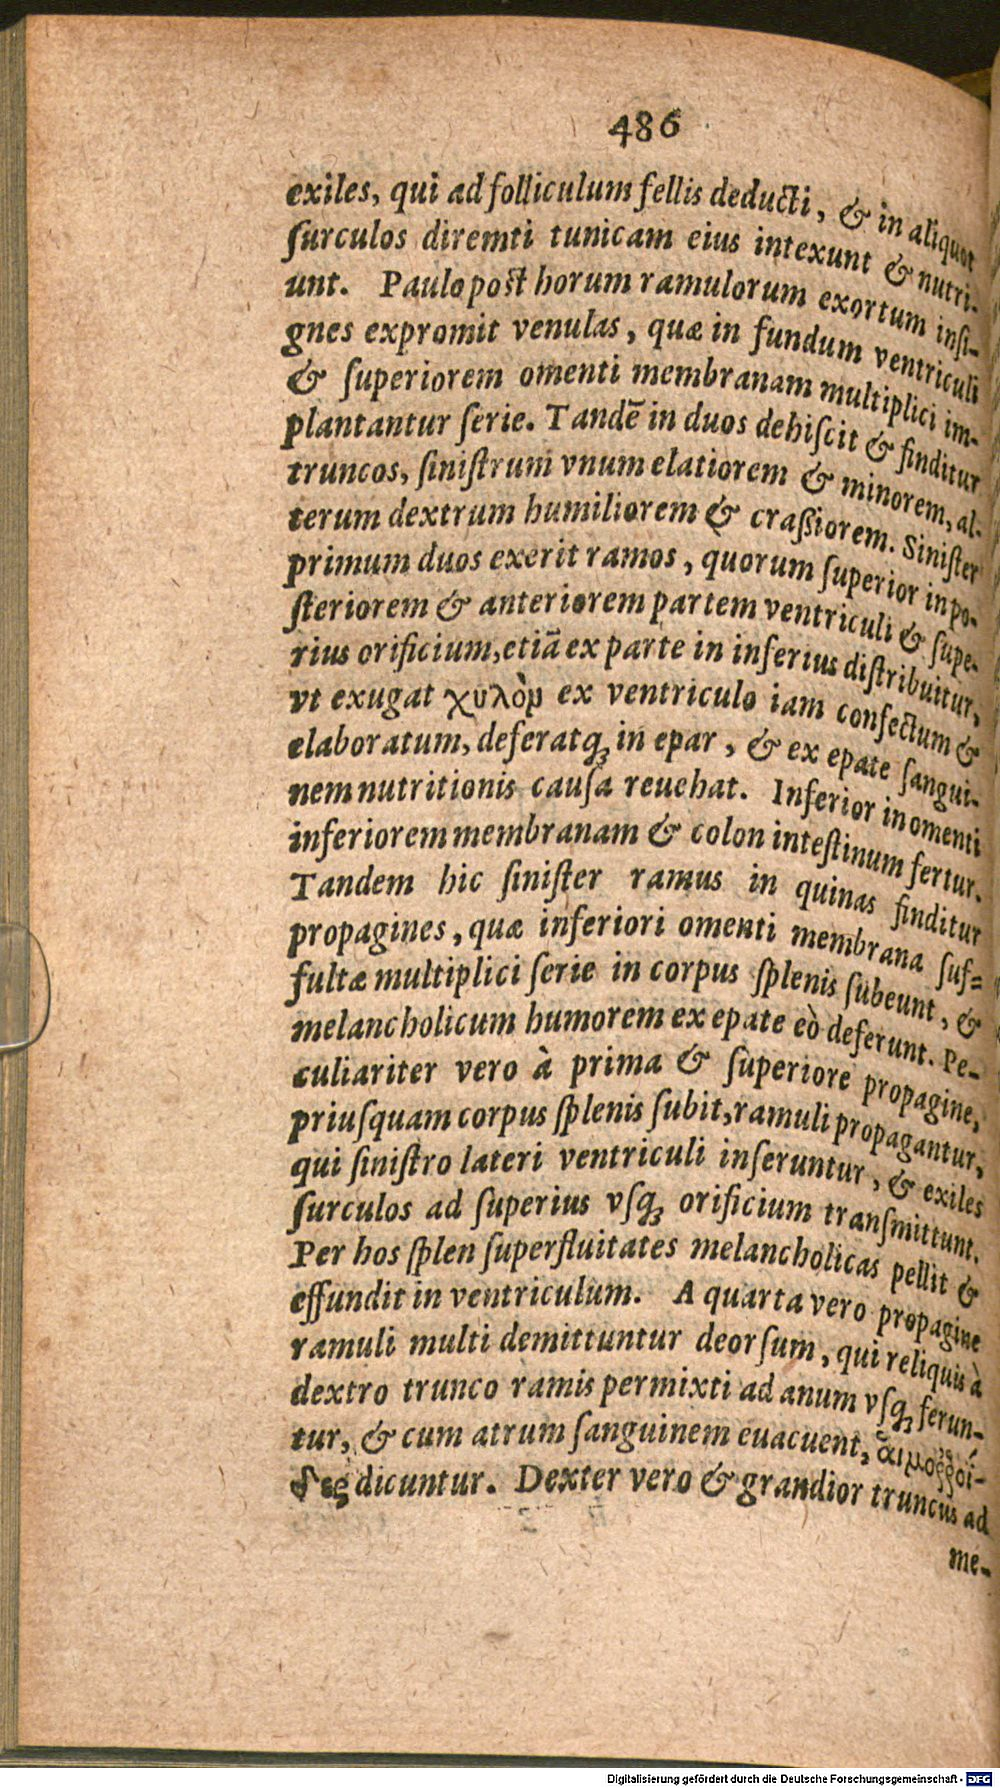 486
exiles, qui ad folliculum fellis deducti, & in aliquot
ſurculos diremti tunicam eius intexunt & nutri-
unt. Paulo poſt horum ramulorum exortum inſi-
gnes expromit venulas, quæ in fundum ventriculi
& ſuperiorem omenti membranam multiplici im-
plantantur ſerie. Tandē in duos dehiſcit & finditur
truncos, ſiniſtrum vnum elatiorem & minorem, al-
terum dextrum humiliorem & craßiorem. Siniſter
primum duos exerit ramos, quorum ſuperior in po-
ſteriorem & anteriorem partem ventriculi & ſupe-
rius orificium, etiā ex parte in inferius diſtribuitur,
vt exugat χυλὸμ ex ventriculo iam confectum &
elaboratum, deferatq́ꝫ in epar, & ex epate ſangui-
nem nutritionis cauſa reuehat. Inferior in omenti
inferiorem membranam & colon inteſtinum fertur.
Tandem hic ſiniſter ramus in quinas finditur
propagines, quæ inferiori omenti membrana ſuf=
fultæ multiplici ſerie in corpus ſplenis ſubeunt, &
melancholicum humorem ex epate eò deferunt. Pe-
culiariter vero à prima & ſuperiore propagine,
priuſquam corpus ſplenis ſubit, ramuli propagantur,
qui ſiniſtro lateri ventriculi inſeruntur, & exiles
ſurculos ad ſuperius vſqꝫ orificium tranſmittunt.
Per hos ſplen ſuperfluitates melancholicas pellit &
effundit in ventriculum. A quarta vero propagine
ramuli multi demittuntur deorſum, qui reliquis à
dextro trunco ramis permixti ad anum vſqꝫ ferun-
tur, & cum atrum ſanguinem euacuent, αἱμοῤῥοί-
δες dicuntur. Dexter vero & grandior truncus ad
me-
Digitalisierung gefördert durch die Deutsche Forschungsgemeinschaft - DFG